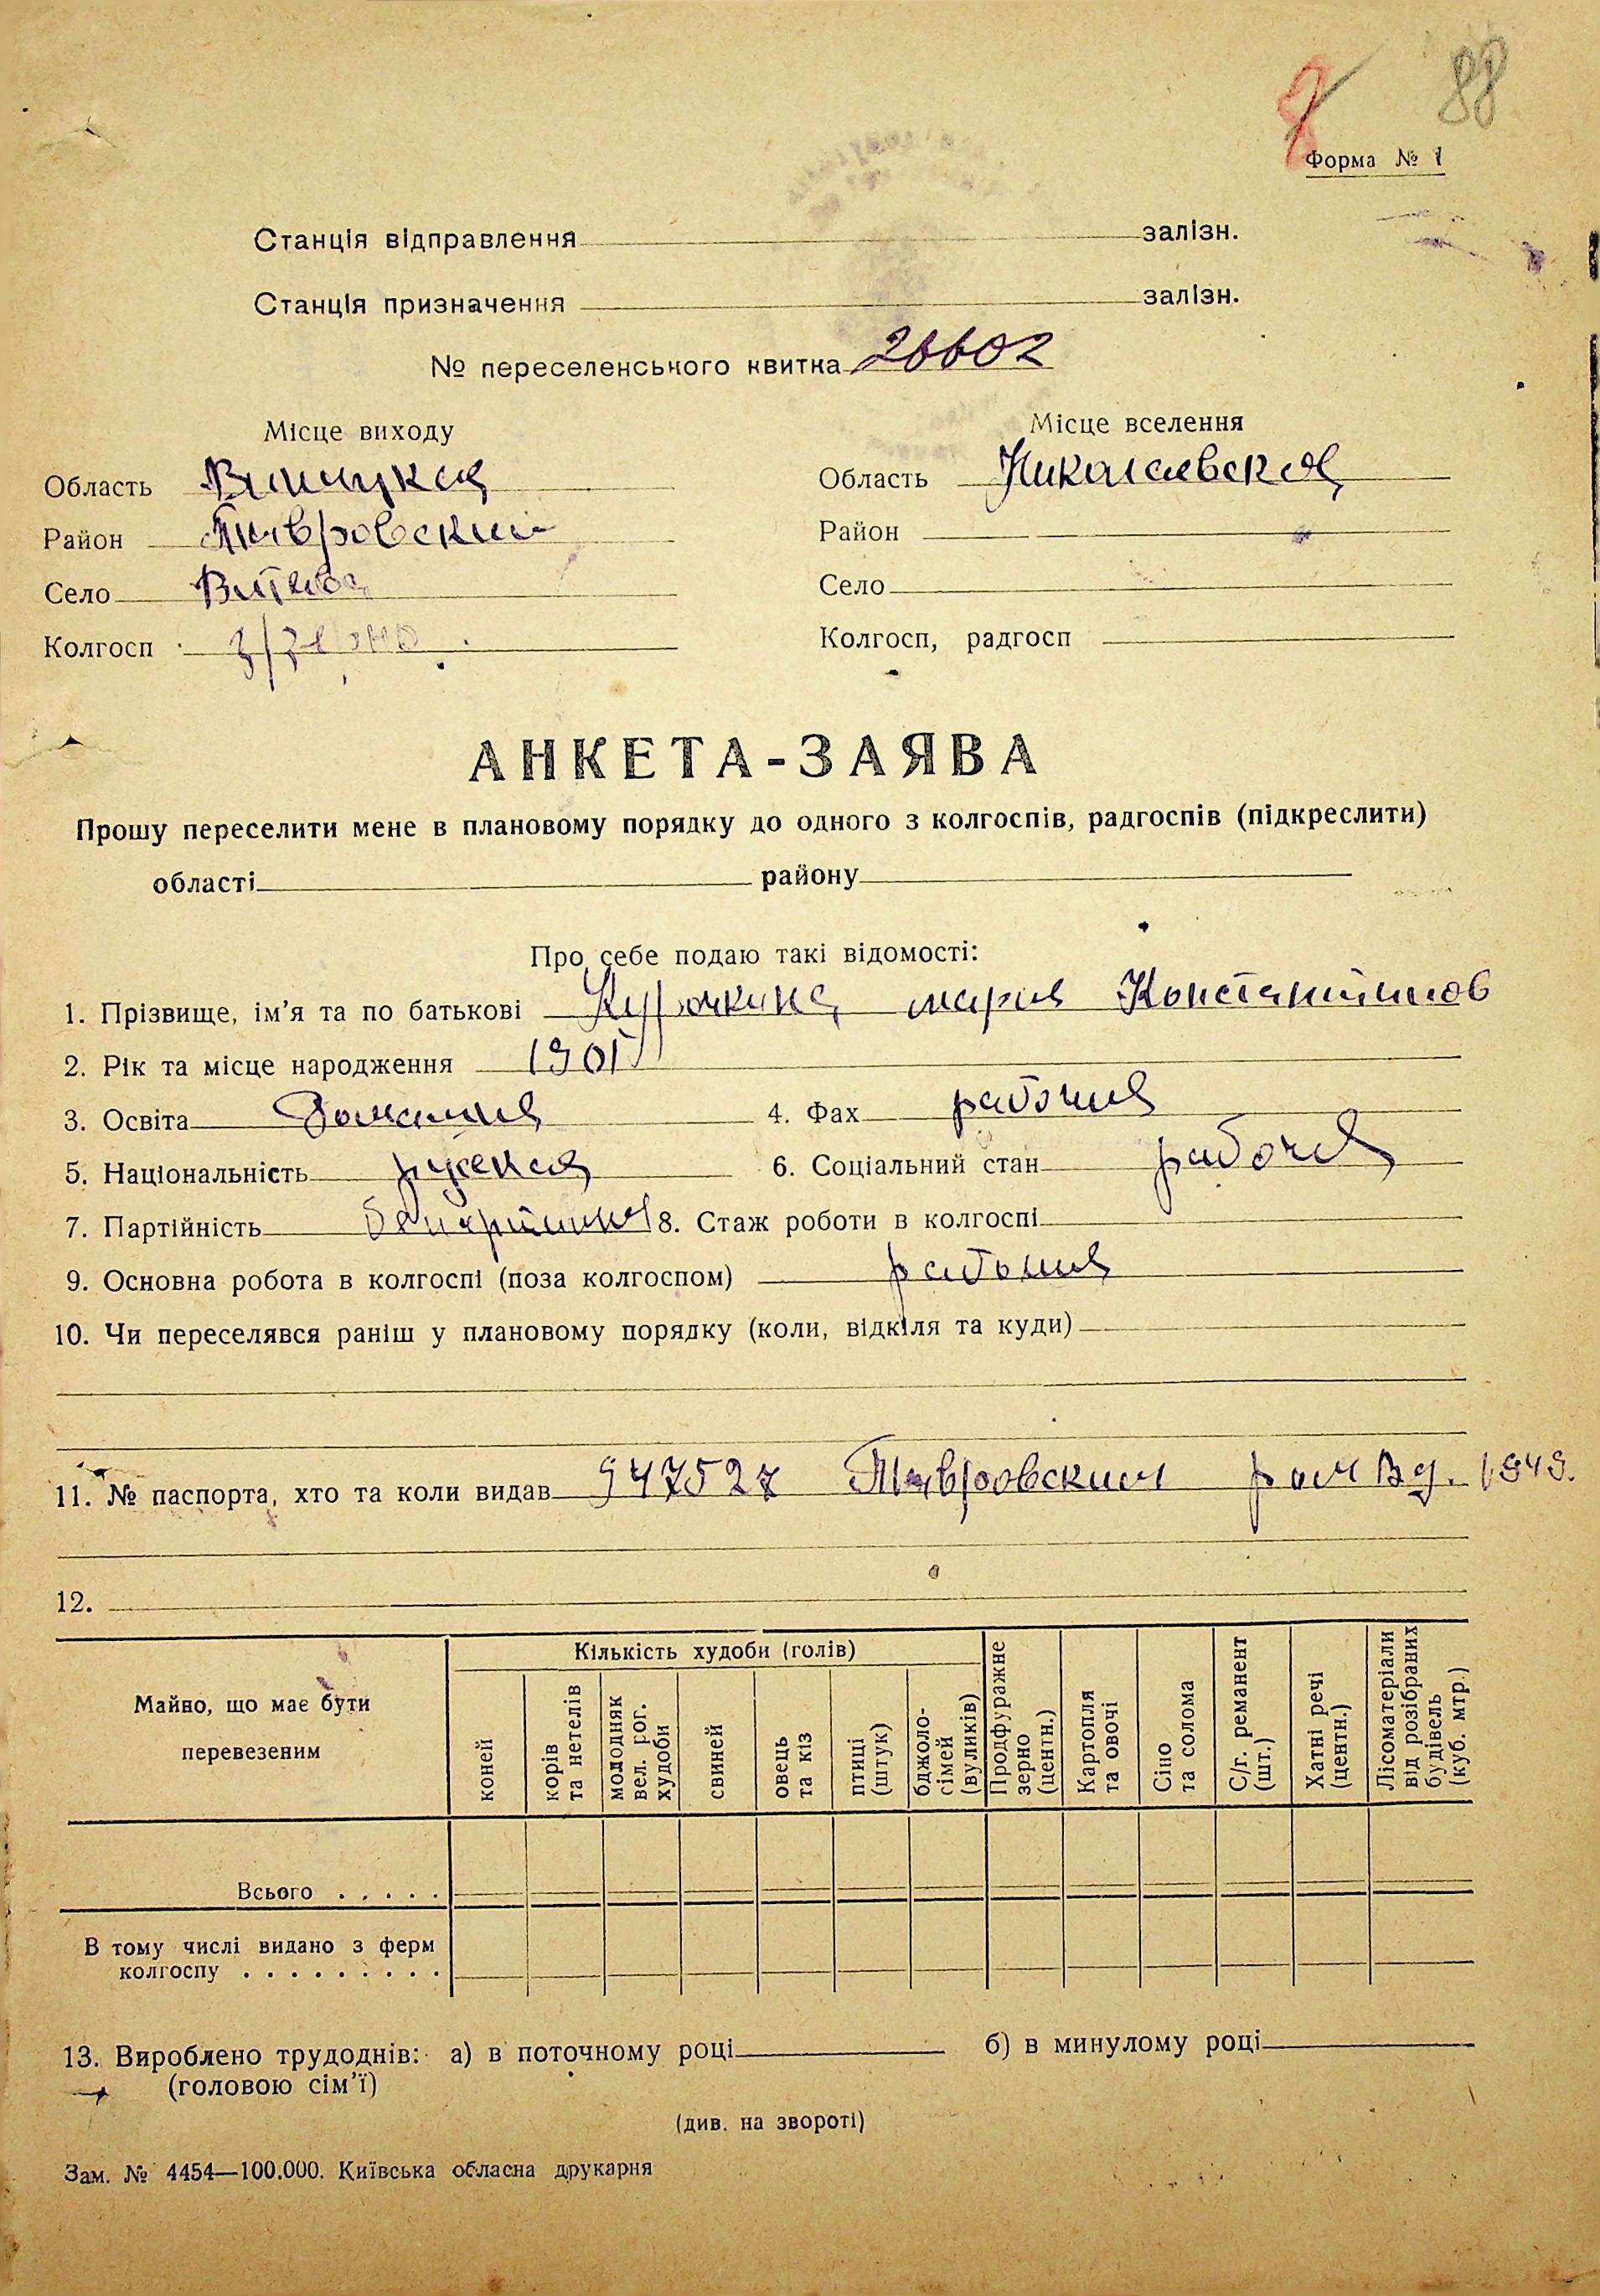 88
Форма № 1
Станція відправлення залізн.
Станція призначення залізн.
№ переселенського квитка 26602
Місце виходу
Місце вселення
Область Винницкая
Область Николаевская
Район Тывровский
Район
Село
Село
Колгосп
Колгосп, радгосп
АНКЕТА-ЗАЯВА
Прошу переселити мене в плановому порядку до одного з колгоспів, радгоспів (підкреслити)
області району
Про себе подаю такі відомості:
1. Прізвище, ім’я та по батькові Курочкина мария Константинов
2. Рік та місце народження 1901
3. Освіта Домашняя 4. Фах рабочая
5. Національність руская 6. Соціальний стан рабочая
7. Партійність безпартийная 8. Стаж роботи в колгоспі
9. Основна робота в колгоспі (поза колгоспом) рабочая
10. Чи переселявся раніш у плановому порядку (коли, відкіля та куди)
11. № паспорта, хто та коли видав 947527 Тывровским 1949.
12.
Майно, що має бути перевезеним
Кількість худоби (голів)
коней
корів та нетелів
молодняк вел. рог. худоби
свиней
овець та кіз
птиці (штук)
бджоло-сімей (вуликів)
Продфуражне зерно (центн.)
Картопля та овочі
Сіно та солома
С/г. реманент (шт.)
Хатні речі (центн.)
Лісоматеріали від розібраних будівель (куб. мтр.)
Всього . . . . .
В тому числі видано з ферм
колгоспу . . . . . . . . .
13. Вироблено трудоднів: а) в поточному році б) в минулому році
(головою сім’ї)
(див. на звороті)
Зам. № 4454—100.000. Київська обласна друкарня